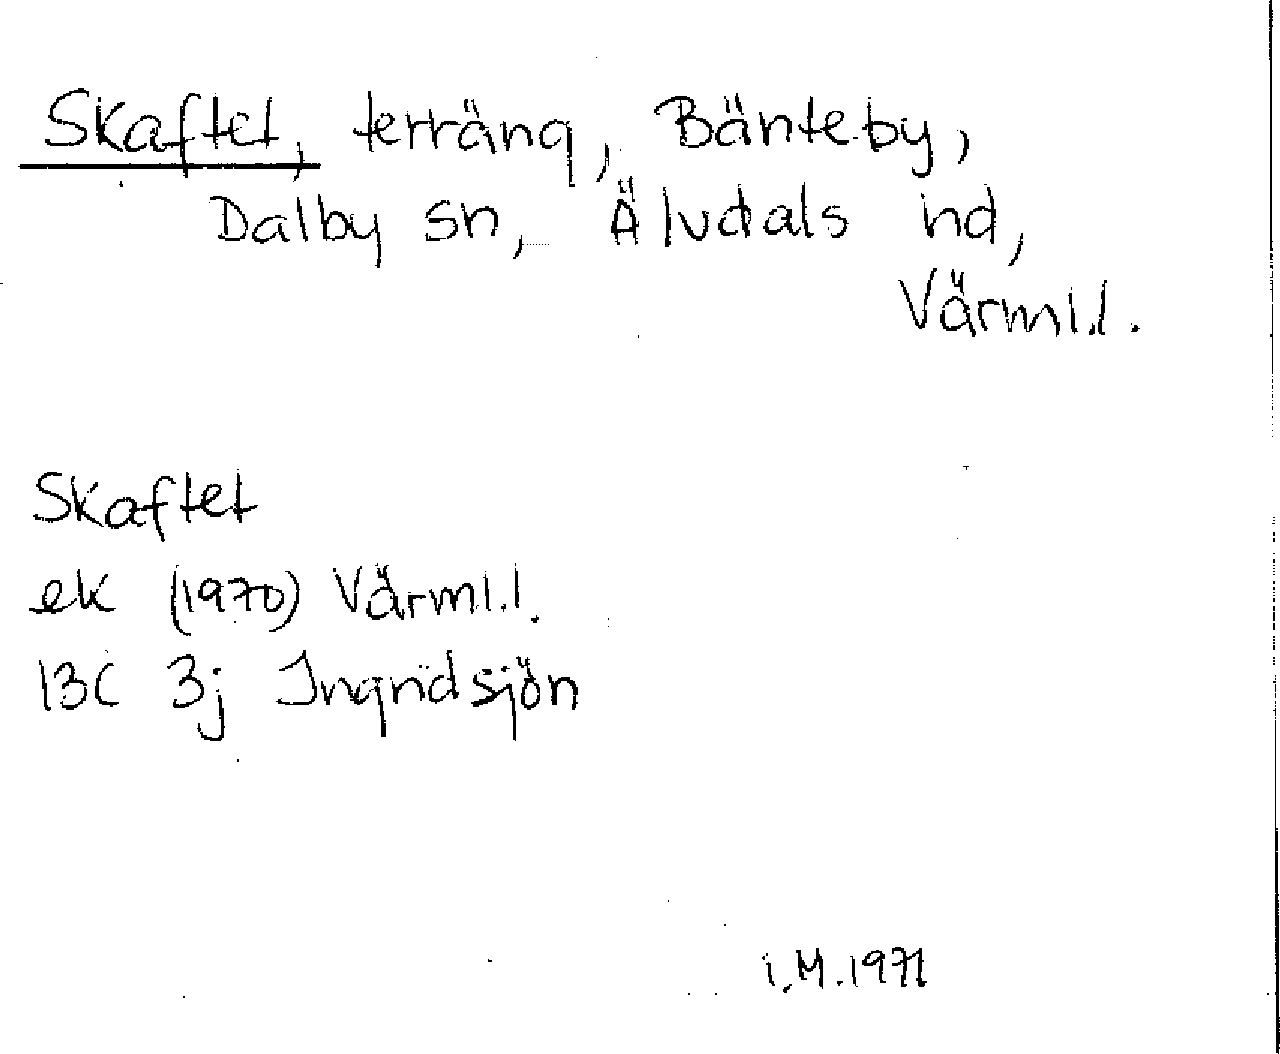 Skaftet, terräng, Bänteby,
Dalby sn, Älvdals hd,
Värml.l.
Skaftet
ek (1970) Värml.l.
13C 3j Ingridsjön
i.M.1971